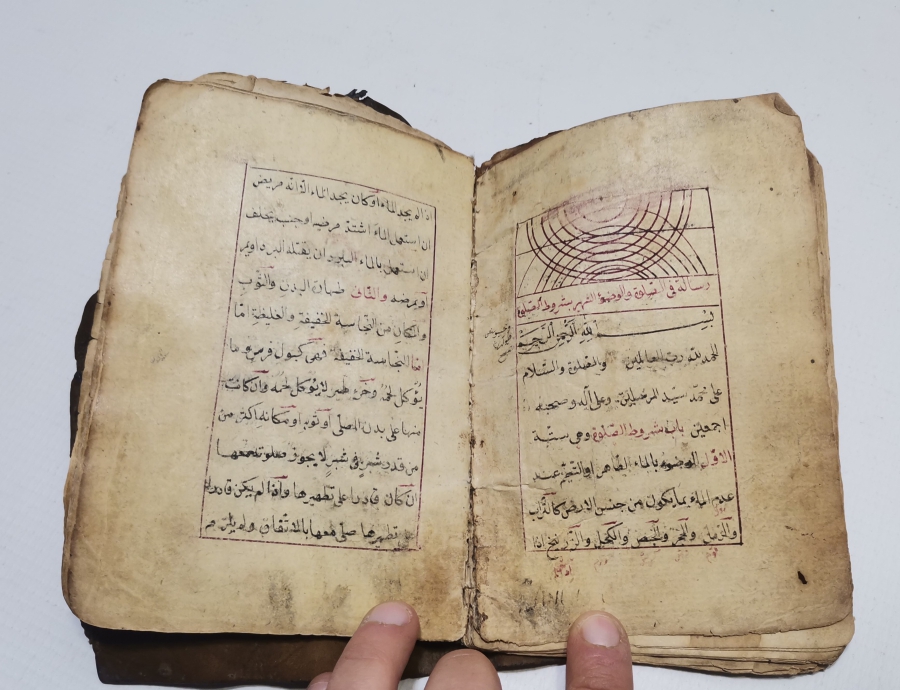 رسالة في الصلوة والوضوء الشهير بشروط الصلوة
بسم الله الرحمن الرحيم
الحمد لله رب العالمين والصلوة والسلام
على محمد سيد المرسلين وعلى آله وصحبه
اجمعين باب شروط الصلوة وهي ستة
الاول الوضوء بالماء الطاهر او التيمم عند
عدم الماء بما يكون من جنس الارض كالتراب
والرمل والحجر والجص والكحل والزرنيخ اذا
اذا لم يجد الماء او كان يجد الماء الا انه مريض
ان استعمل الماء اشتد مرضه او جنب يخاف
ان استعمل بالماء البارد ان يقتله البرد او يمر
او يمرضه والثاني طهارة البدن والثوب
والمكان من النجاسة الخفيفة والغليظة امّا
النجاسة الخفيفة فهي كبول فرس وما
يؤكل لحمه وخرء طير لا يؤكل لحمه وان كانت
منها على بدن المصلّي او ثوبه او مكانه اكثر من
من قدر شبر في شبر لا يجوز صلوته معها
ان كان قادرا على تطهيرها واذا لم يكن قادرا
على تطهيرها صلّى معها بالاتّفاق ولم يلزم